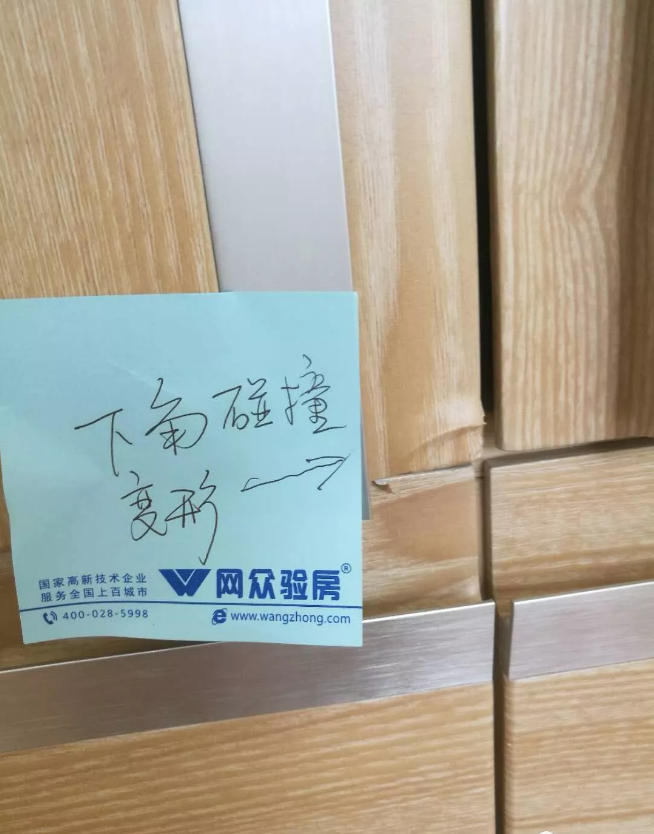 下角碰撞
变形
国家高新技术企业
服务全国上百城市
网众验房®
400-028-5998
www.wangzhong.com